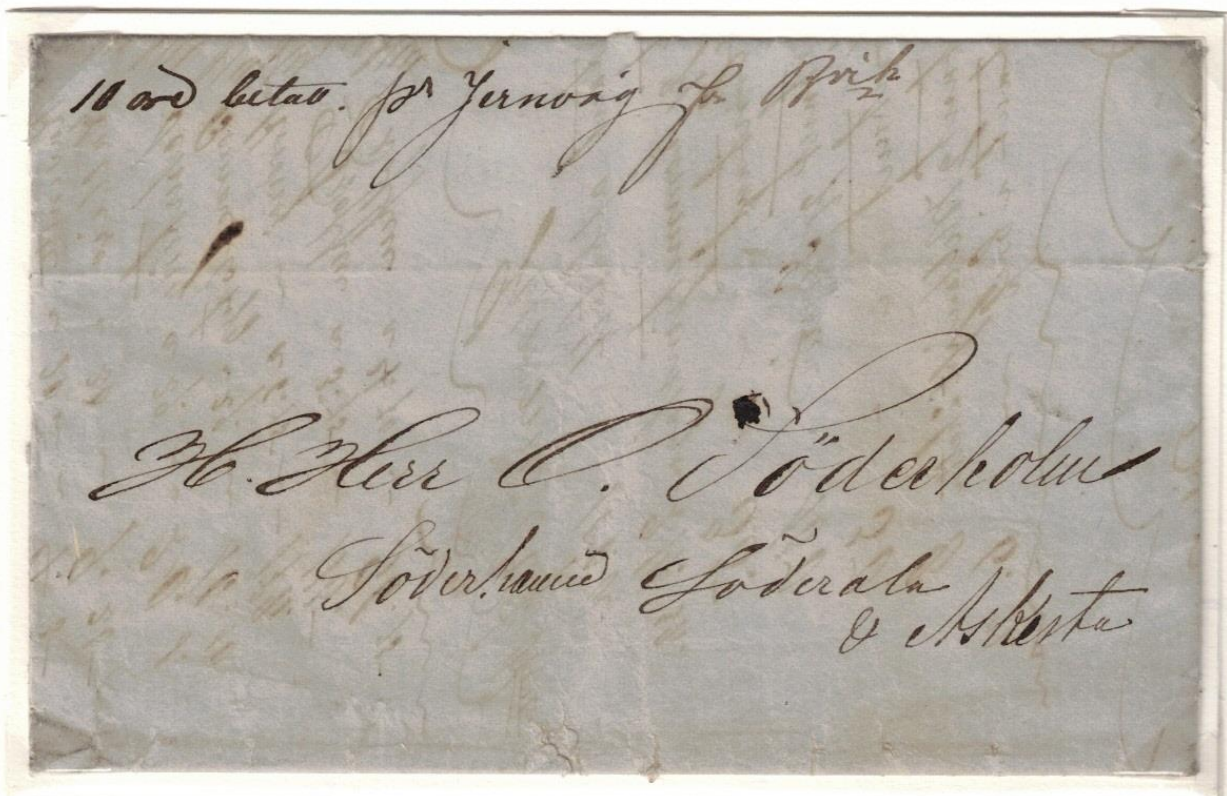 10 öre betalt. pr Jernväg
H. Herr O. Söderholm
Söderhamn Söderala
& Askesta